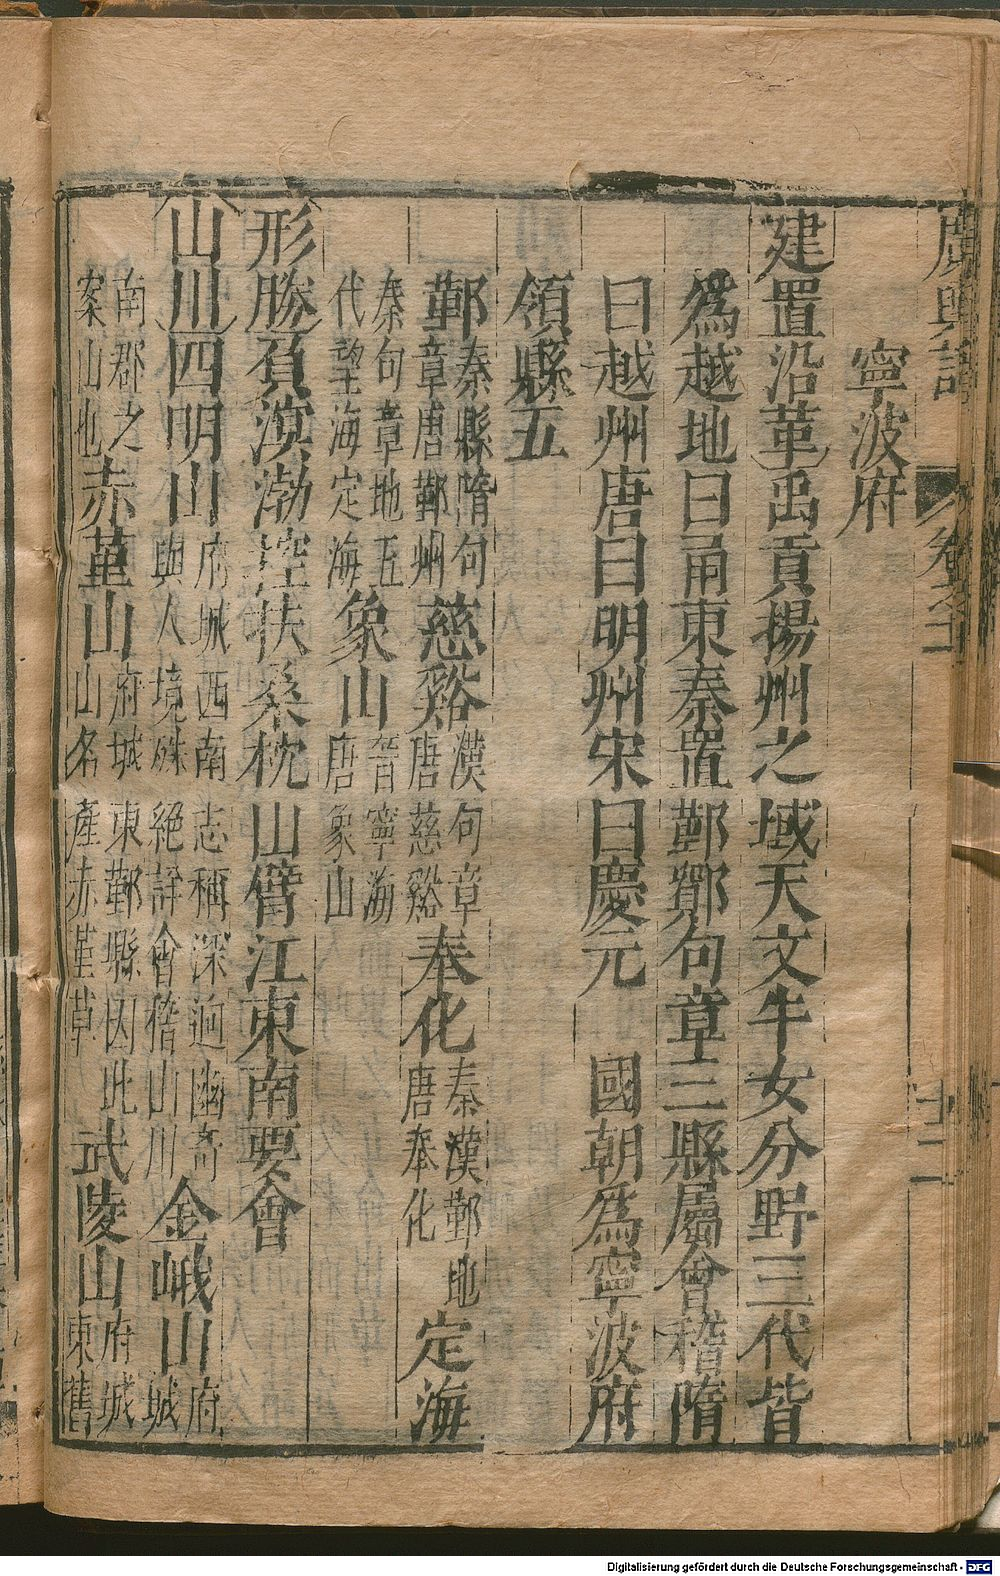 廣輿記
卷之十一
十二
寧波府
建置沿革禹貢揚州之域天文牛女分野三代皆
爲越地曰甬東秦置鄞鄮句章三縣屬會稽隋
曰越州唐曰明州宋曰慶元 國朝爲寧波府
領縣五
鄞秦縣隋句章唐鄮州慈谿漢句章唐慈谿奉化秦漢鄞地唐奉化定海
秦句章地五代望海定海象山晉寧海唐象山
形勝負溟渤控扶桑枕山臂江東南要會
山川四明山府城西南志稱深迥幽奇與人境殊絕詳會稽山川金峨山府城
南郡之案山也赤堇山府城東鄞縣因此山名產赤堇草武陵山府城東舊
Digitalisierung gefördert durch die Deutsche Forschungsgemeinschaft - DFG